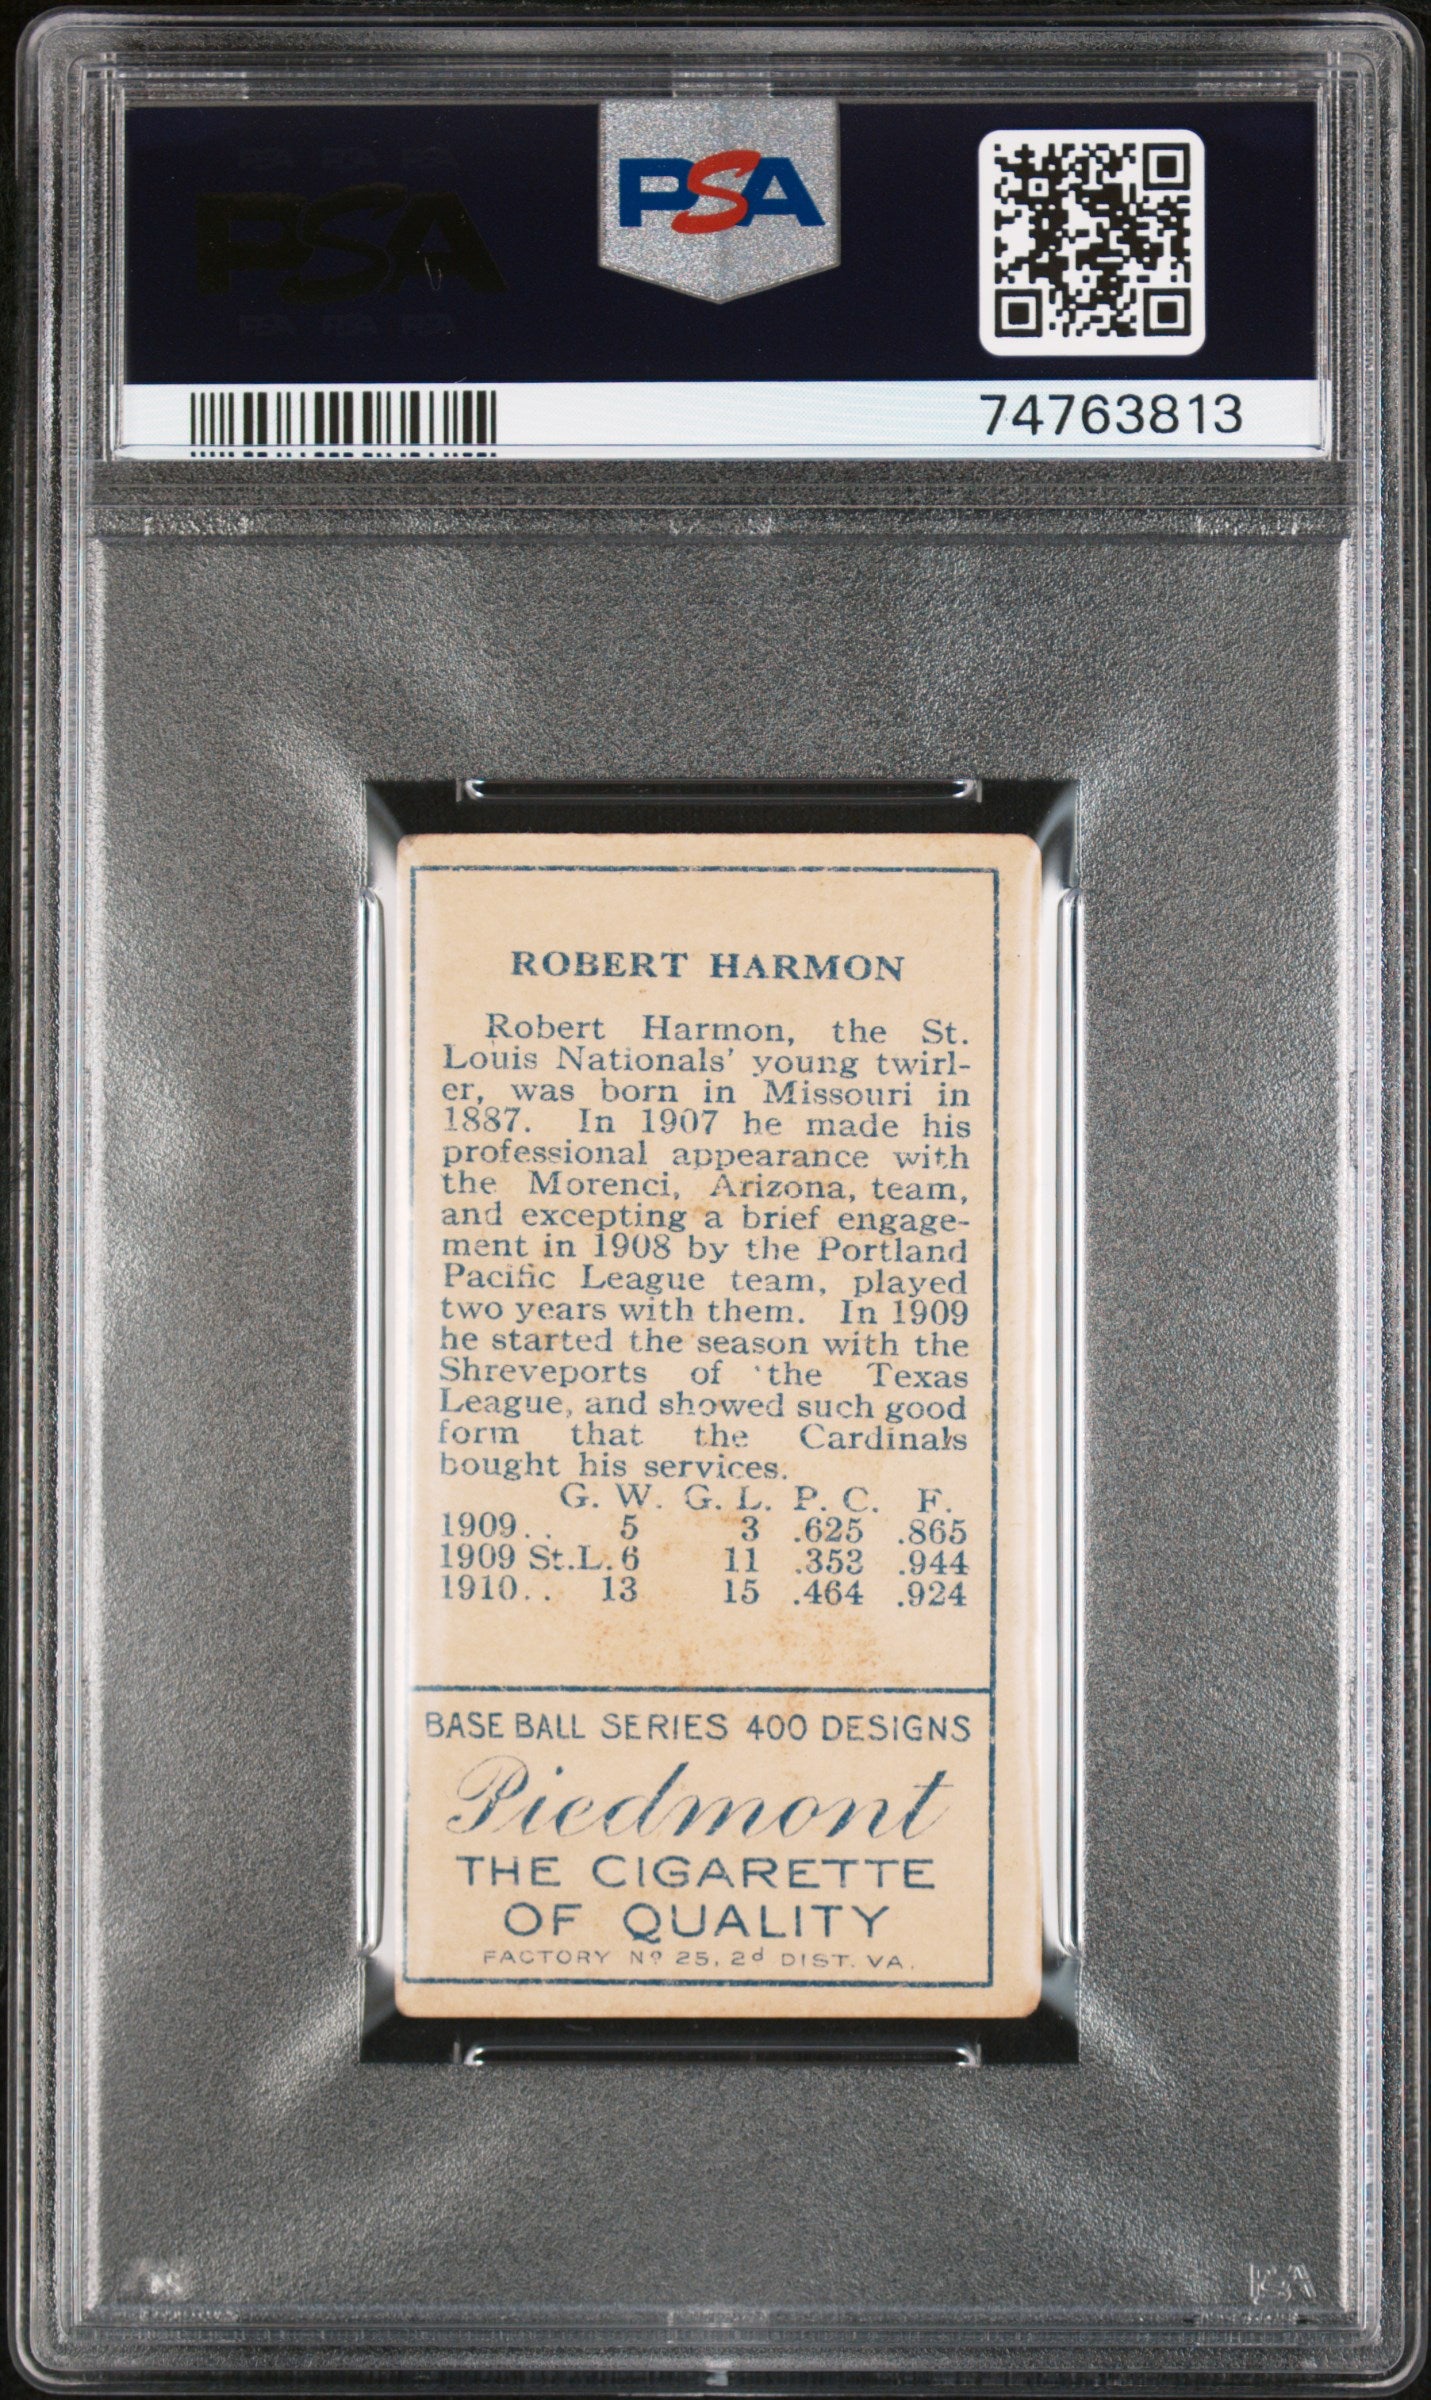 PSA
PSA
74763813
ROBERT HARMON
Robert Harmon, the St.
Louis Nationals' young twirl-
er, was born in Missouri in
1887. In 1907 he made his
professional appearance with
the Morenci, Arizona, team,
and excepting a brief engage-
ment in 1908 by the Portland
Pacific League team, played
two years with them. In 1909
he started the season with the
Shreveports of the Texas
League, and showed such good
form that the Cardinals
bought his services.
G. W. G. L. P. C. F.
1909.. 5 3 .625 .865
1909 St.L. 6 11 .353 .944
1910.. 13 15 .464 .924
BASE BALL SERIES 400 DESIGNS
Piedmont
THE CIGARETTE
OF QUALITY
FACTORY Nº 25, 2d DIST. VA.